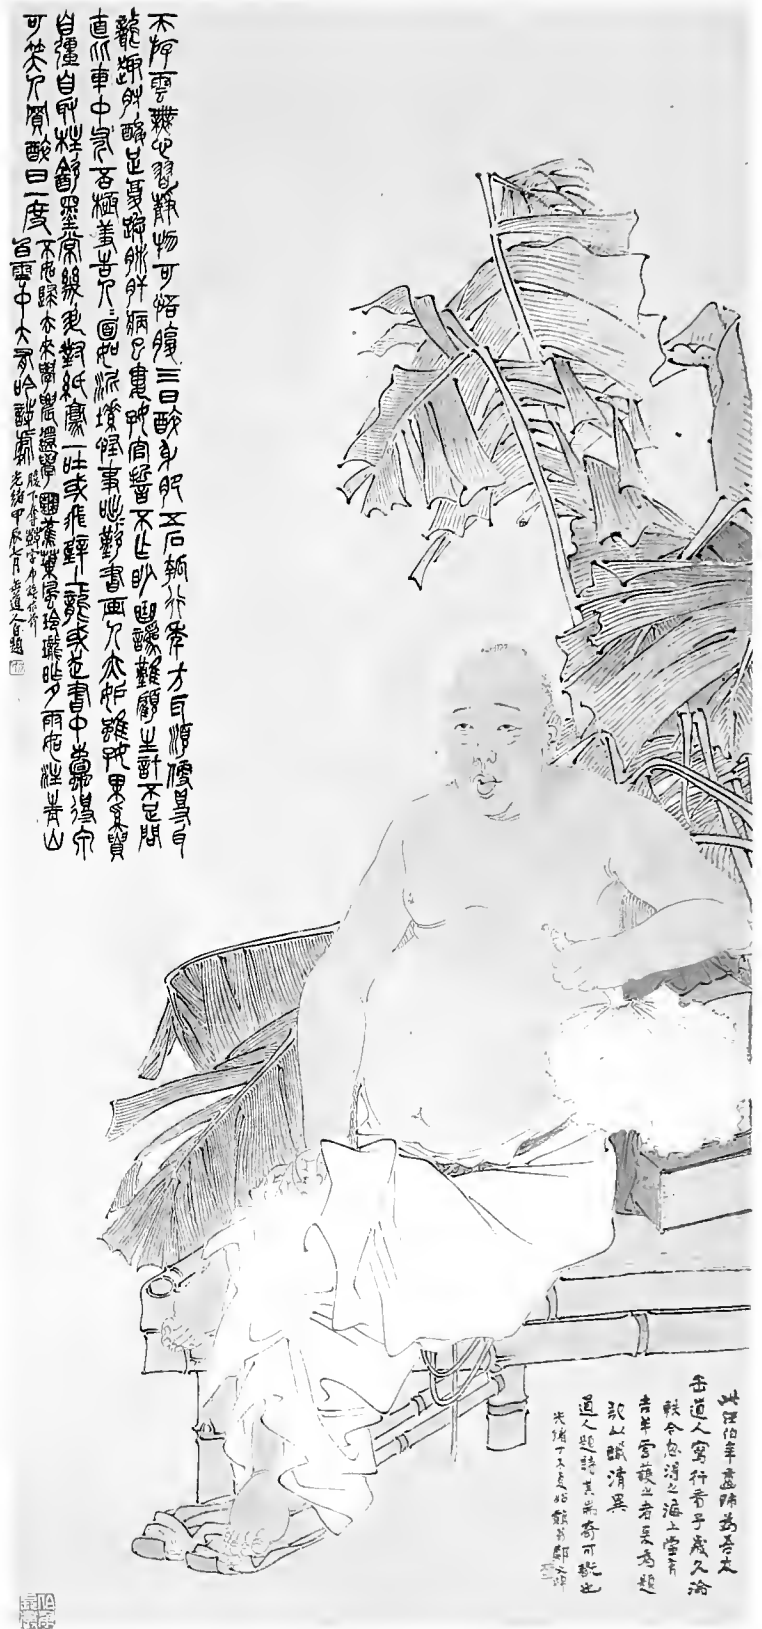 天游雲無心習靜物可悟腹三日醉身肥五石瓠行年方耳順便得耳
聾趣肘酸足復跛肺肝病已婁好官誓不作眇匋譌難顧生計不足問
直比車中布否極羞告人人面如泥塑怪事咄咄歎書畫人亦妒雖好果奚貿
自彊自取柱飽墨常幾斗對紙豪一吐或飛壁上龍或走書中蠹得泉
可笑人買醉日一度不如歸亦來學農還學圃蕉葉風玲瓏昨夕雨如注青山
白雲中大有吟詩處
腹下奪鼓字
光緒甲辰七月缶道人自題
此任伯年畫師為吾友
缶道人寫行看子歲久淪
軼今忽得之海上當有
吉羊雲護之者奚為題
記以識清異
道人題詩其崇奇可誦也
光緒丁未夏鄭文焯